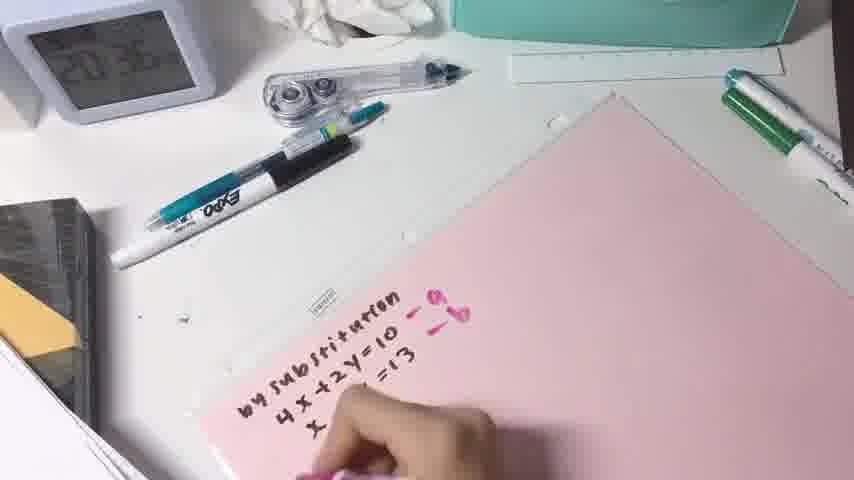 20:36
EXPO
by substitution
4x+2y=10 - a
x =13 - b